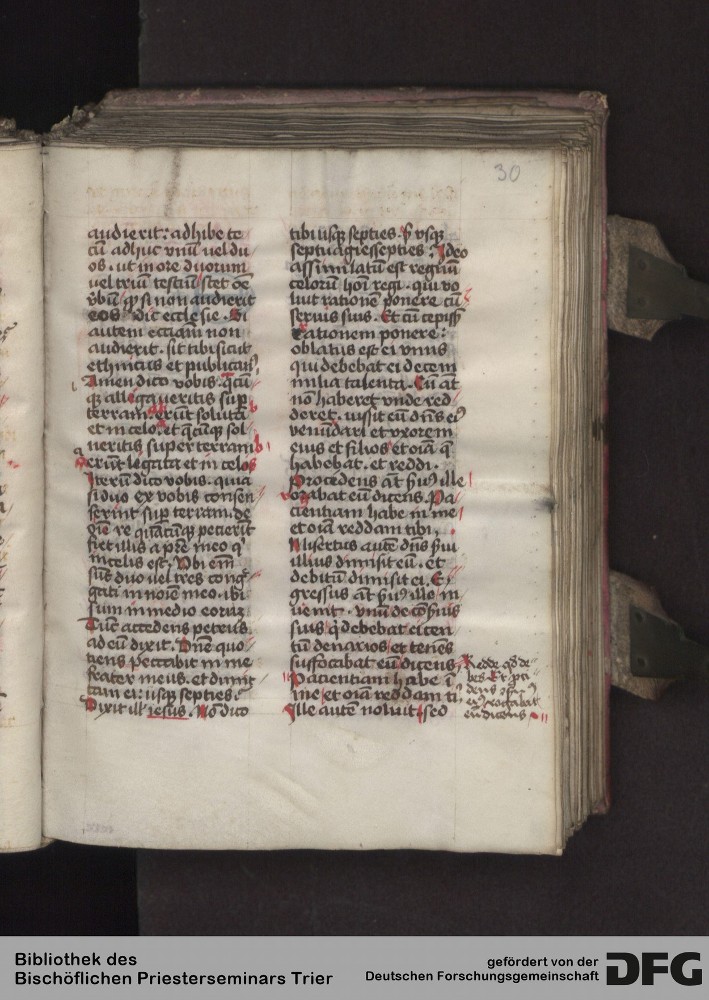 30
audierit: adhibe te
cū adhuc vnū uel du
os. ut in ore duorum
uel triū testiū stet oē
v̄bū qp si non audierit
eos dic ecclesie. Si
autem eccl̄iam non
audierit. sit tibi sicut
ethnicus et publican9
Amen dico vobis. q̄cū
q3 alligaueritis sup
terram. erūt soluta
et in celo. et q̄cūq3 sol
ueritis super terram
erūt legata et in celo
Iterū dico vobis. quia
si duo ex vobis consen
serint sup terram. de
om̄e re quācūq3 petierīt
fiet illis a pr̄e meo q'
in celis est. Vbi em̄
sūt duo uel tres cong̃
gati in noīe meo. ibi
sum in medio eorum
Tūc accedens petrus
ad eū dixit. Dn̄e quo
tiens peccabit in me
frater meus. et dimit
tam ei: usq3 septies.
Dixit illi iesus. Nō dico
tibi usq3 septies. s3 vsq3
septuagiessepties: Ideo
assimilatū est regnū
celorū hoī regi. qui vo
luit rationē ponere cū
seruis suis. Et cū cepiss3
rationem ponere:
oblatus est ei vnus
qui debebat ei decem
milia talenta. Cū at̄
nō haberet vnde red
deret. iussit eū dn̄s ei9
venūdari et vxorem
eius et filios et oīa q̄
habebat. et reddi.
Procedens at̄ ſu9 ille
orabat eū dicens. Pa
cientiam habe in me
et oīa reddam tibi.
Misertus autē dn̄s ſui
illius dimisit eū. et
debitū dimisit ei. E
gressus at̄ ſu9 ille in
uenit. vnū de cōſuis
suis q' debebat ei cen
tū denarios et tenēs
suffocabat eū dicens
Pacientiam habe ī
me et oīa reddam ti
Ille autē noluit sed
Redde qd' de
bes Et p̄ci
dens 9ſu9
ei9 rogabat
eū dicens
Bibliothek des
Bischöflichen Priesterseminars Trier
gefördert von der
Deutschen Forschungsgemeinschaft
DFG